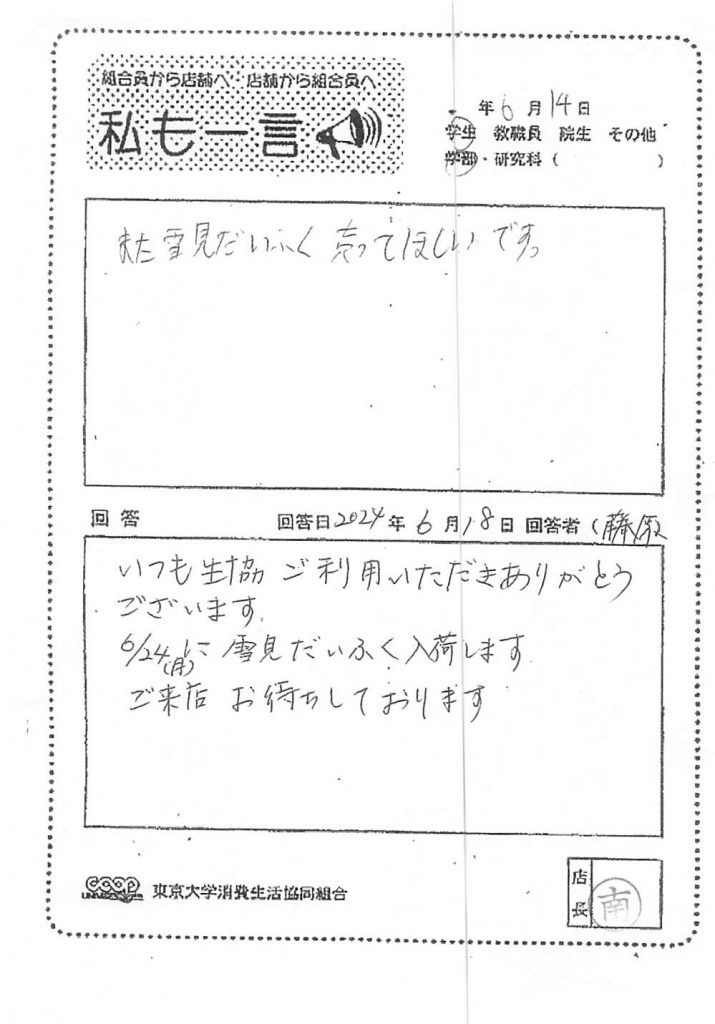 組合員から店舗へ 店舗から組合員へ
私も一言
年6月14日
学生 教職員 院生 その他
学部・研究科（ ）
また雪見だいふく 売ってほしいです。
回答 回答日2024年6月18日 回答者（藤原
いつも生協 ご利用いただきありがとう
ございます。
6/24(月)に 雪見だいふく入荷します
ご来店 お待ちしております
coop 東京大学消費生活協同組合
店長 南